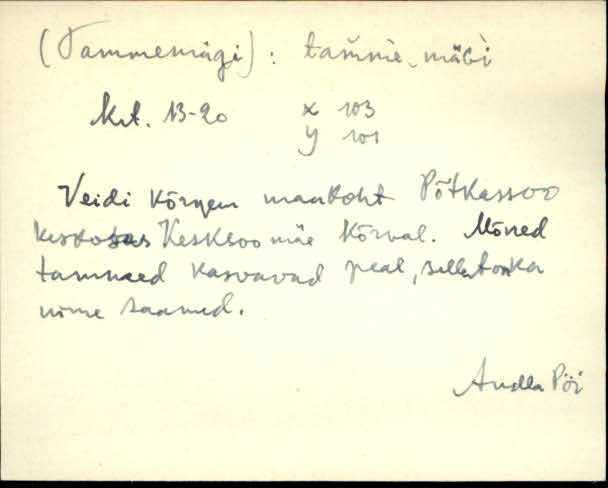 (Tammemägi): tam̆mè, mäG̀i
krt. 13-20 x 103
y 101
Veidi kõrgem maakoht Põtkassoo
keskosas Kesksoomäe kõrval. Mõned
tammed kasvavad peal, selletõttu ka
nime saanud.